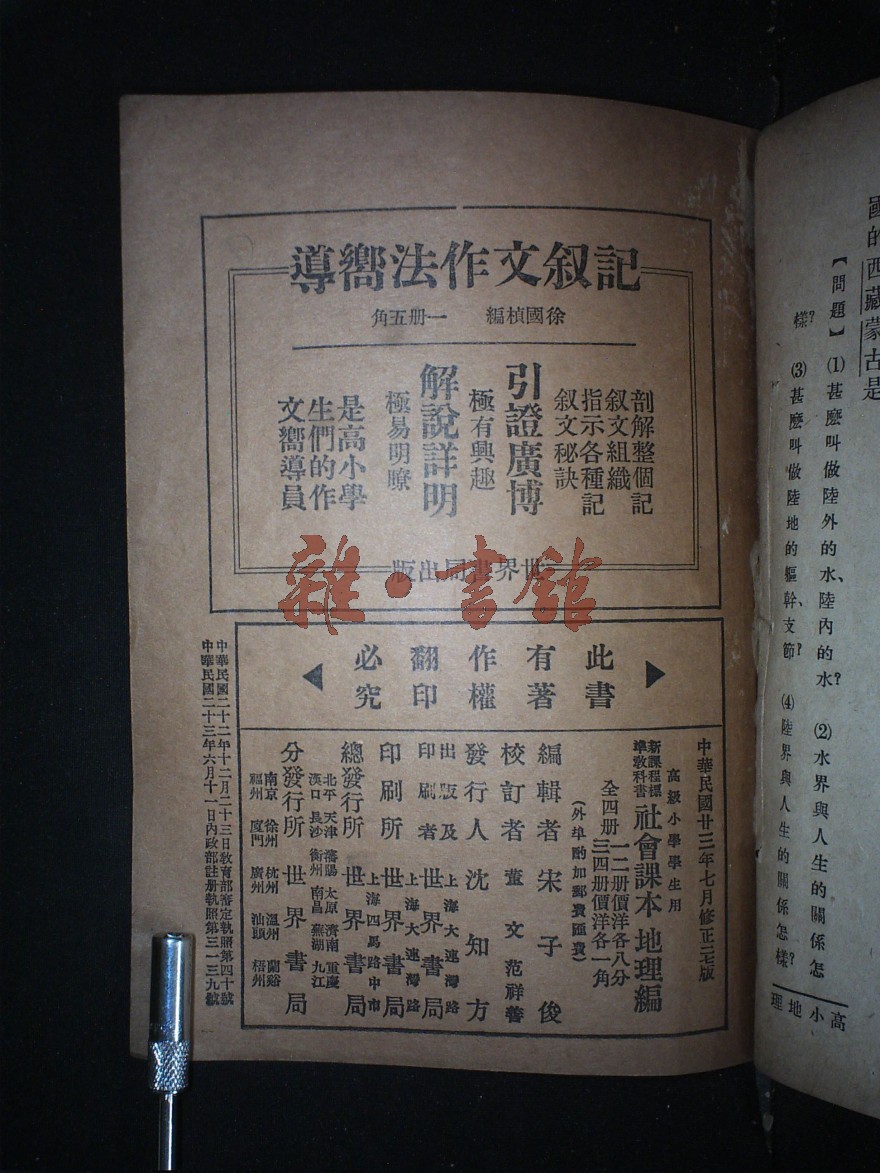 記叙文作法嚮導
徐國楨編 一册五角
剖解整個記
叙文組織
指示各種記
叙文秘訣
引證廣博
極有興趣
解說詳明
極易明瞭
是高小學
生們的作
文嚮導員
世界書局出版
雜·書館
此書
有著
作權
翻印
必究
中華民國廿三年七月修正二七版
高級小學學生用
新課程標
準教科書
社會課本地理編
全四册
一二册價洋各八分
三四册價洋各一角
(外埠酌加郵費匯費)
編輯者 宋子俊
校訂者 董文 范祥善
發行人 沈知方
出版及
印刷者 上海大連灣路
世界書局
印刷所 上海大連灣路
世界書局
總發行所 上海四馬路中市
世界書局
分發行所 世界書局
北平 天津 瀋陽 太原 濟南 重慶
漢口 長沙 衡州 南昌 蕪湖 九江
南京 徐州 杭州 溫州 蘭谿
福州 廈門 廣州 汕頭 梧州
中華民國二十二年十二月二十三日教育部審定執照第四十號
中華民國二十三年六月十一日內政部註册執照第三一三九號
國的西藏蒙古是
【問題】 (1)甚麽叫做陸外的水、陸內的水? (2)水界與人生的關係怎
樣? (3)甚麽叫做陸地的軀幹、支節? (4)陸界與人生的關係怎樣?
高小地理